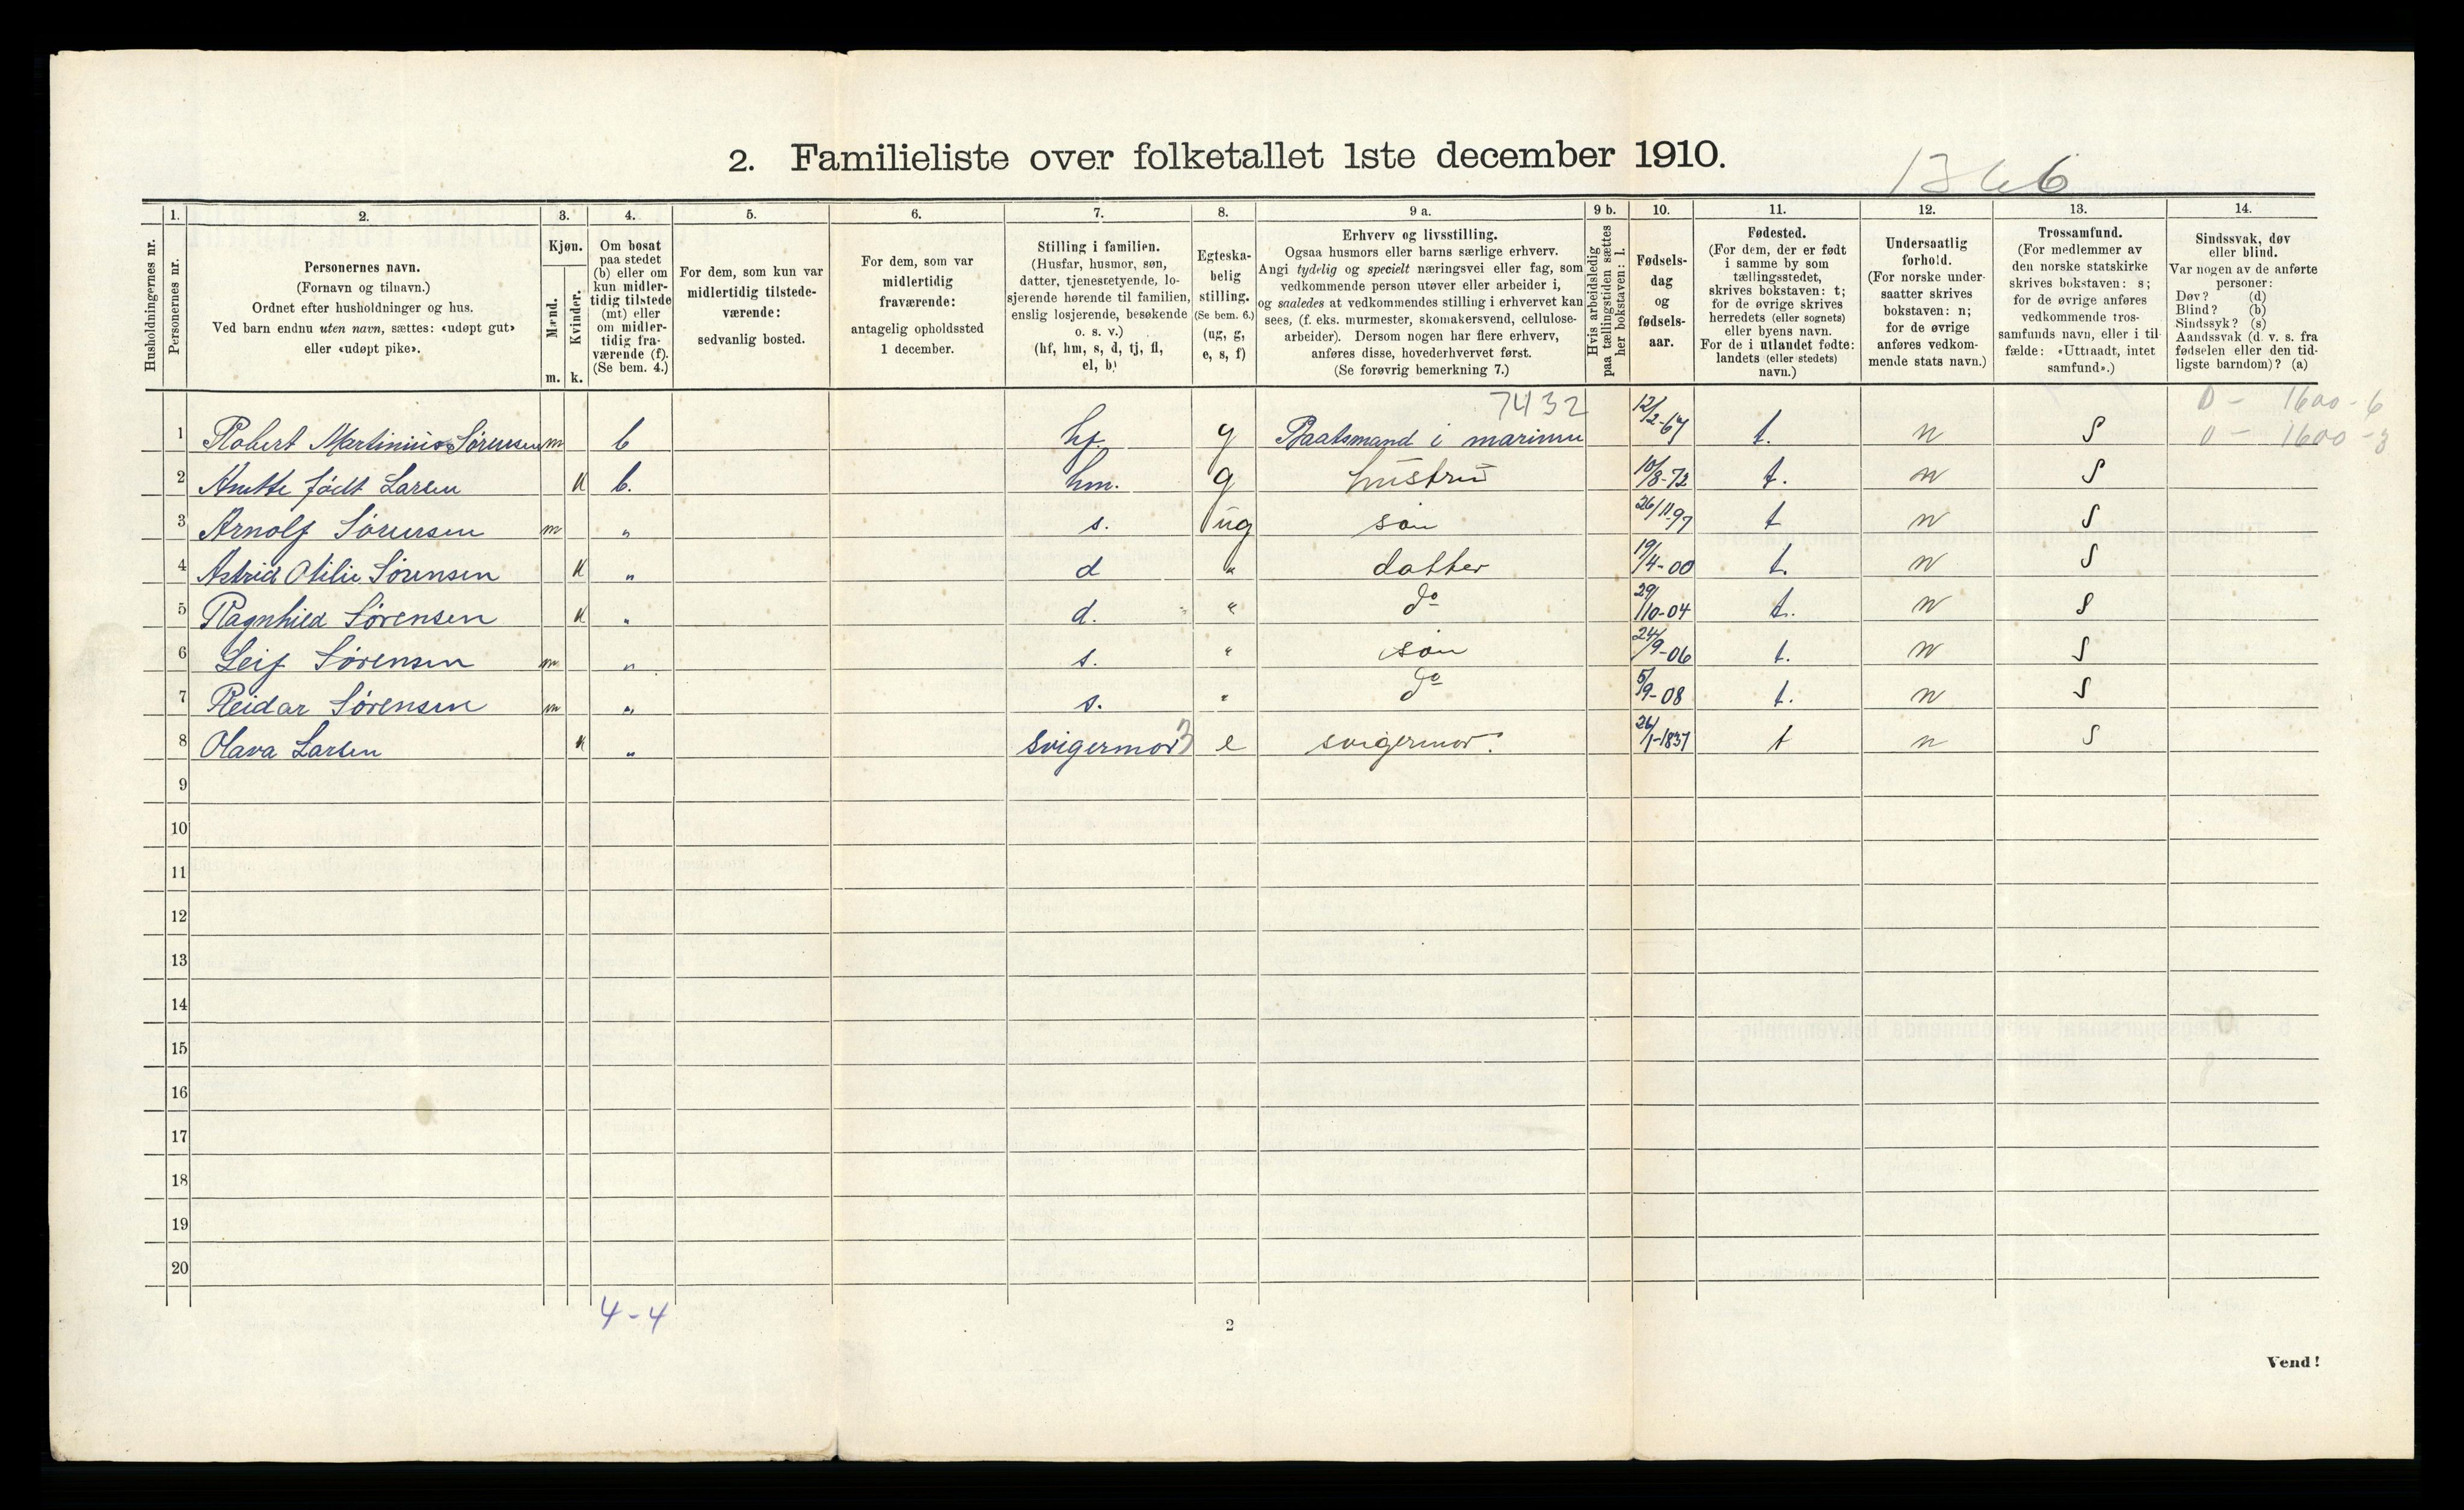 2. Familieliste over folketallet 1ste december 1910.
1366
1. 2. 3. 4. 5. 6. 7. 8. 9 a. 9 b. 10. 11. 12. 13. 14.
Husholdningernes nr.
Personernes nr.
Personernes navn.
(Fornavn og tilnavn.)
Ordnet efter husholdninger og hus.
Ved barn endnu uten navn, sættes: «udøpt gut»
eller «udøpt pike».
Kjøn.
Mænd.
m.
Kvinder.
k.
Om bosat
paa stedet
(b) eller om
kun midler-
tidig tilstede
(mt) eller
om midler-
tidig fra-
værende (f).
(Se bem. 4.)
For dem, som kun var
midlertidig tilstede-
værende:
sedvanlig bosted.
For dem, som var
midlertidig
fraværende:
antagelig opholdssted
1 december.
Stilling i familien.
(Husfar, husmor, søn,
datter, tjenestetyende, lo-
sjerende hørende til familien,
enslig losjerende, besøkende
o. s. v.)
(hf, hm, s, d, tj, fl,
el, b)
Egteska-
belig
stilling.
(Se bem. 6.)
(ug, g,
e, s, f)
Erhverv og livsstilling.
Ogsaa husmors eller barns særlige erhverv.
Angi tydelig og specielt næringsvei eller fag, som
vedkommende person utøver eller arbeider i,
og saaledes at vedkommendes stilling i erhvervet kan
sees, (f. eks. murmester, skomakersvend, cellulose-
arbeider). Dersom nogen har flere erhverv,
anføres disse, hovederhvervet først.
(Se forøvrig bemerkning 7.)
Hvis arbeidsledig
paa tællingstiden sættes
her bokstaven: l.
Fødsels-
dag
og
fødsels-
aar.
Fødested.
(For dem, der er født
i samme by som
tællingsstedet,
skrives bokstaven: t;
for de øvrige skrives
herredets (eller sognets)
eller byens navn.
For de i utlandet fødte:
landets (eller stedets)
navn.)
Undersaatlig
forhold.
(For norske under-
saatter skrives
bokstaven: n;
for de øvrige
anføres vedkom-
mende stats navn.)
Trossamfund.
(For medlemmer av
den norske statskirke
skrives bokstaven: s;
for de øvrige anføres
vedkommende tros-
samfunds navn, eller i til-
fælde: «Uttraadt, intet
samfund».)
Sindssvak, døv
eller blind.
Var nogen av de anførte
personer:
Døv? (d)
Blind? (b)
Sindssyk? (s)
Aandssvak (d. v. s. fra
fødselen eller den tid-
ligste barndom)? (a)
7432
0 - 1600 - 6
0 - 1600 - 3
1 Robert Martinius Sørensen m b hf. g Baatsmand i marinen 12/2-67 t. n S
2 Anette født Larsen k b. hm. g hustru 10/8-72 t. n S
3 Arnolf Sørensen m " s. ug søn 26/11-97 t n S
4 Astrid Otilie Sørensen k " d " datter 19/4-00 t. n S
5 Ragnhild Sørensen k " d. " do 29/10-04 t. n S
6 Leif Sørensen m " s. " søn 24/9-06 t. n S
7 Reidar Sørensen m " s. " do 5/9-08 t. n S
8 Olava Larsen k " svigermor 3 e svigermor. 26/1-1837 t n S
9
10
11
12
13
14
15
16
17
18
19
20
4-4
2
Vend!